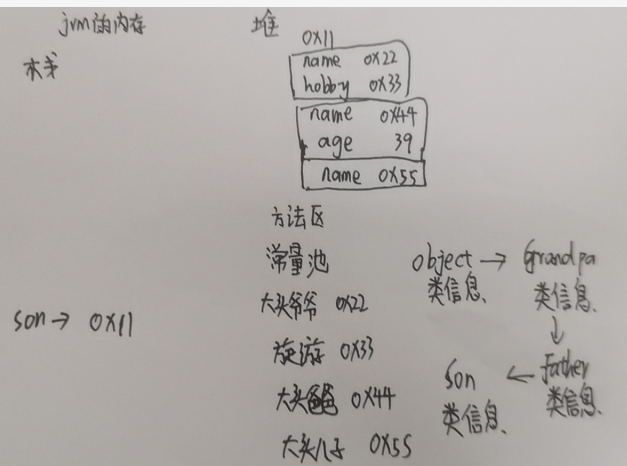 jvm的内存
栈
堆
0X11
name 0X22
hobby 0X33
name 0X44
age 39
name 0X55
方法区
常量池
大头爷爷 0X22
旅游 0X33
大头爸爸 0X44
大头儿子 0X55
son→ 0X11
object → Grandpa
类信息、 类信息、
↓
Son ← father
类信息、 类信息、